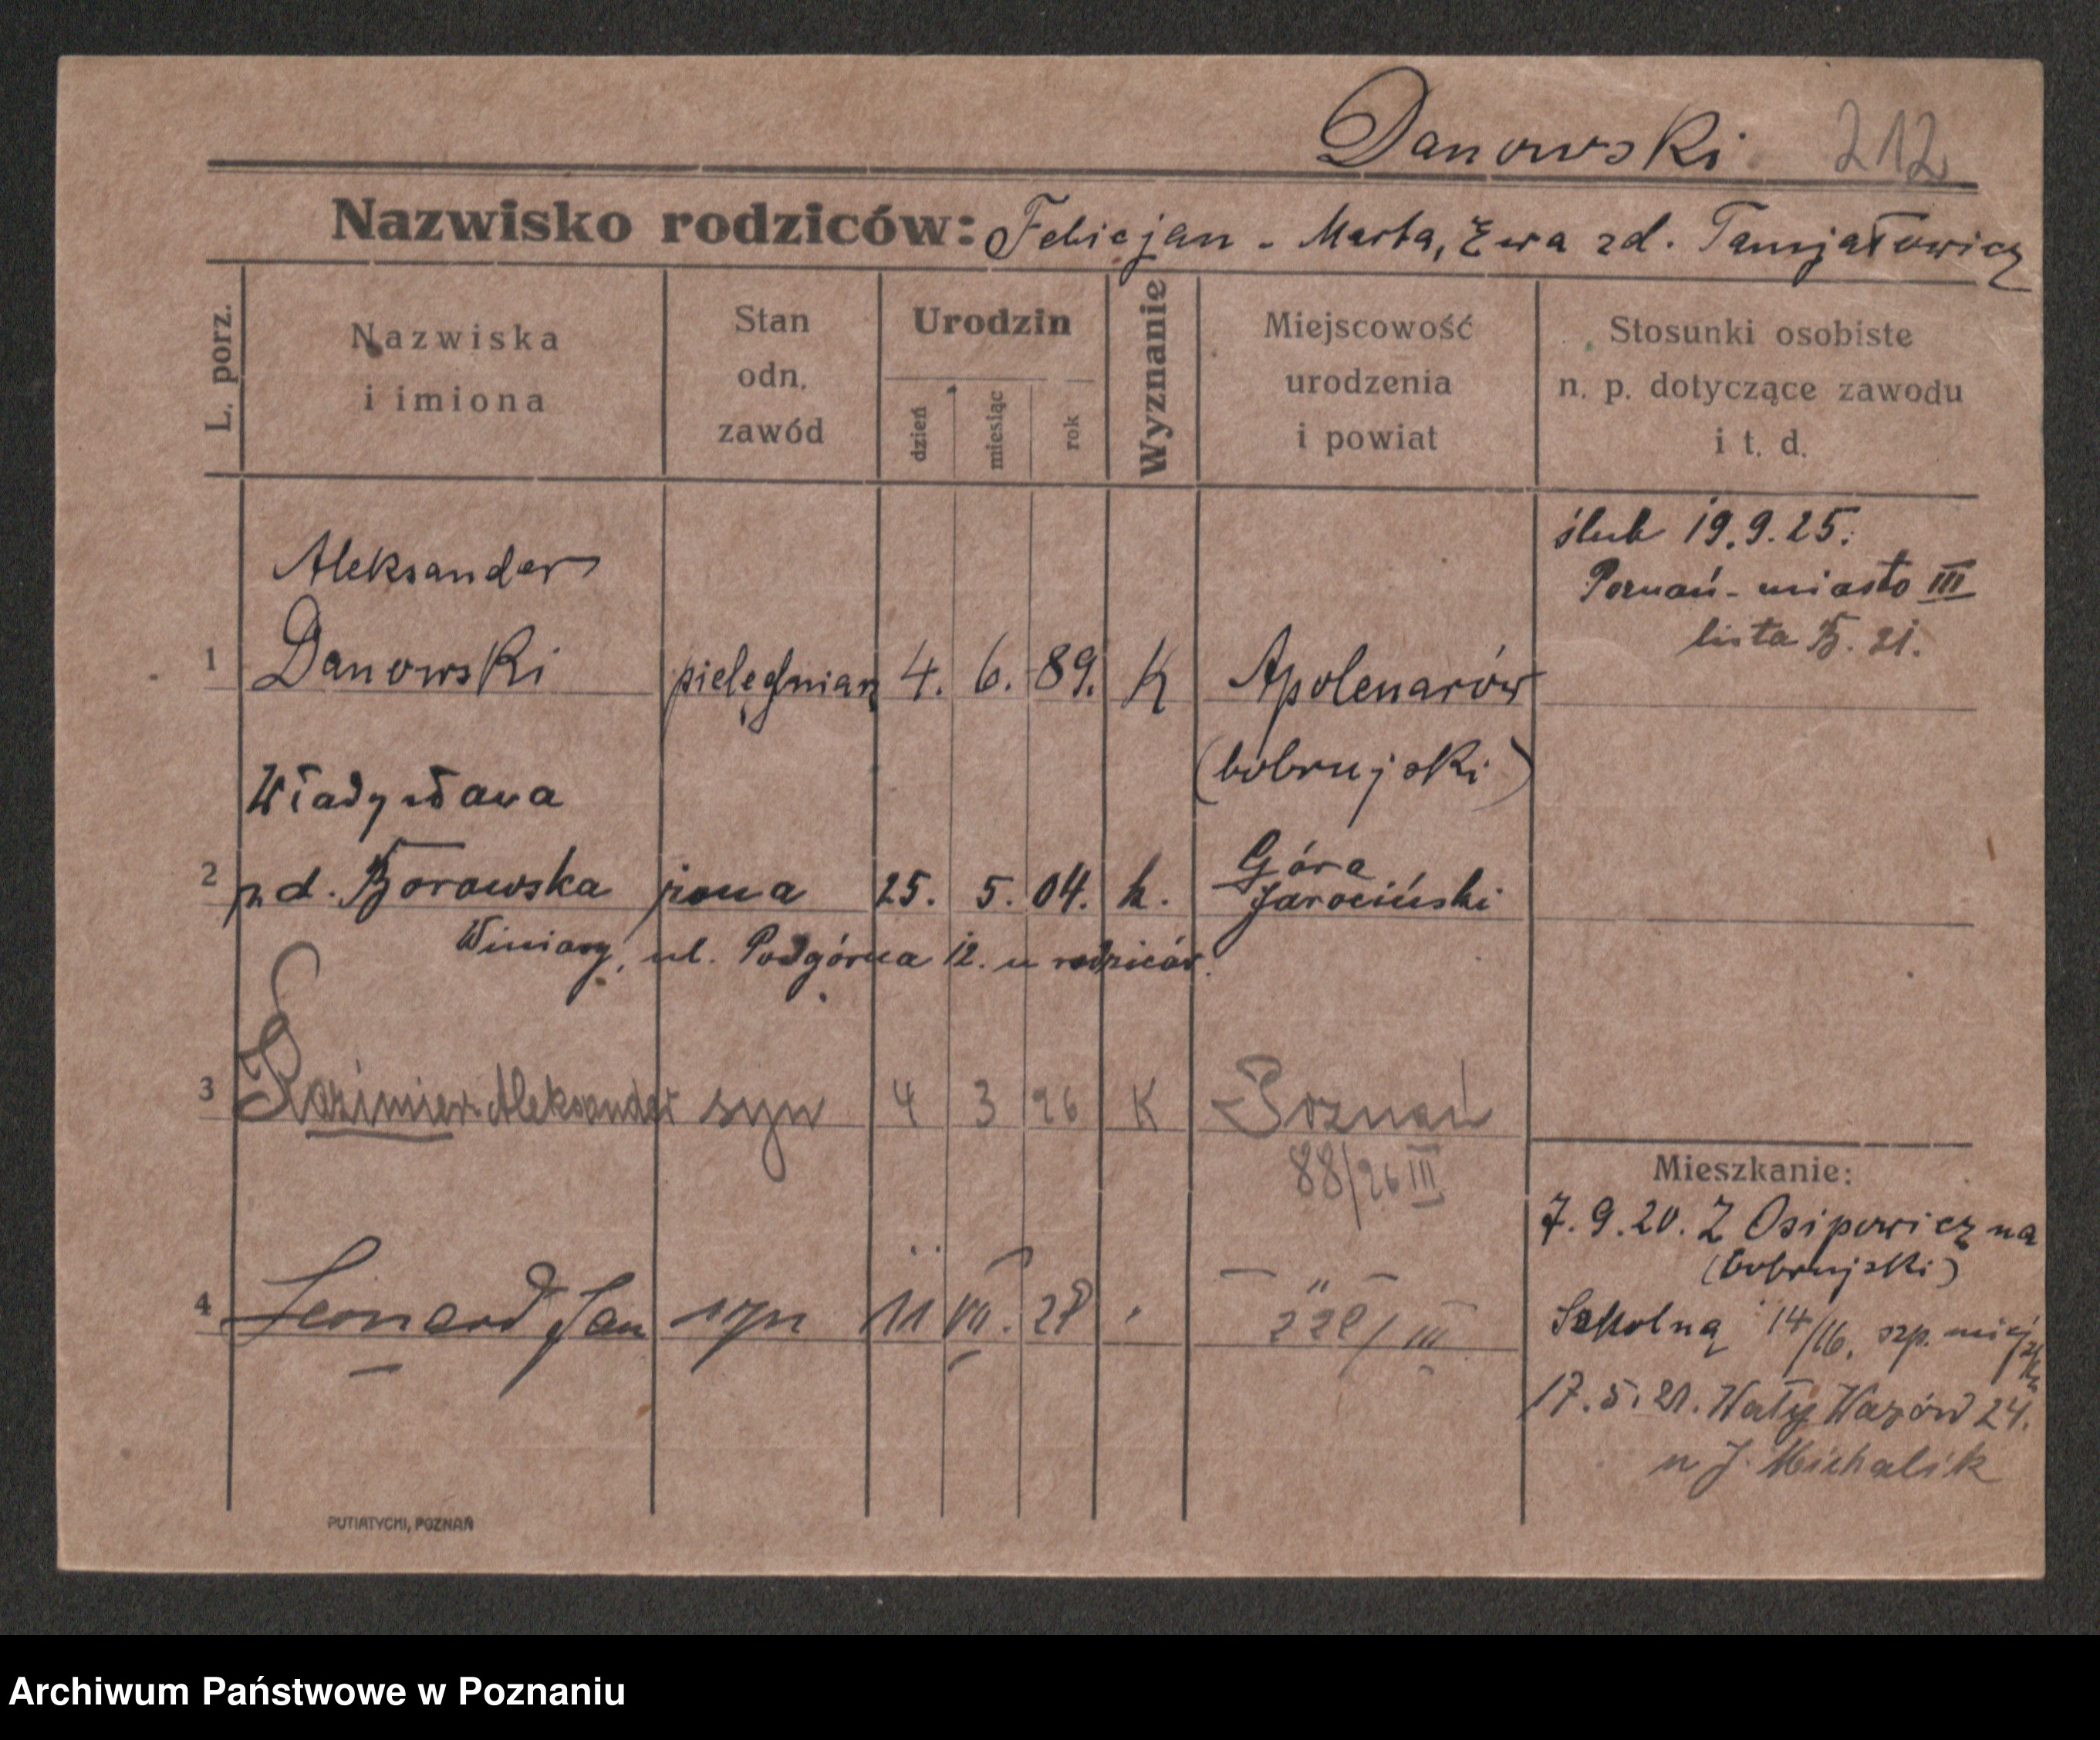 Danowski 212
Nazwisko rodziców: Felicjan - Marta, Ewa zd.
L. porz.
Nazwiska
i imiona
Stan
odn.
zawód
Urodzin
dzień
miesiąc
rok
Wyznanie
Miejscowość
urodzenia
i powiat
Stosunki osobiste
n. p. dotyczące zawodu
i t. d.
ślub 19.9.25.
Poznań - miasto III
lista B. 21.
Aleksander
1 Danowski 4. 6. 89. K Apolenarów
(bobrujski)
Władysława
2 Borowska żona 25. 5. 04. k. Góra
Jarociński
Winiary, ul. Podgórna 12. u rodziców.
3 Kazimierz Aleksander syn 4 3 26 K Poznań
88/26 III
4 Leonard Jan syn 11 VII. 28 " 228/III
Mieszkanie:
7.9.20. Z Osipowicz na
(bobrujski)
Szkolną 14/16. szp. miejski
17.5.21. Wały Wazów 24.
u J. Michalik
PUTIATYCKI, POZNAŃ
Archiwum Państwowe w Poznaniu